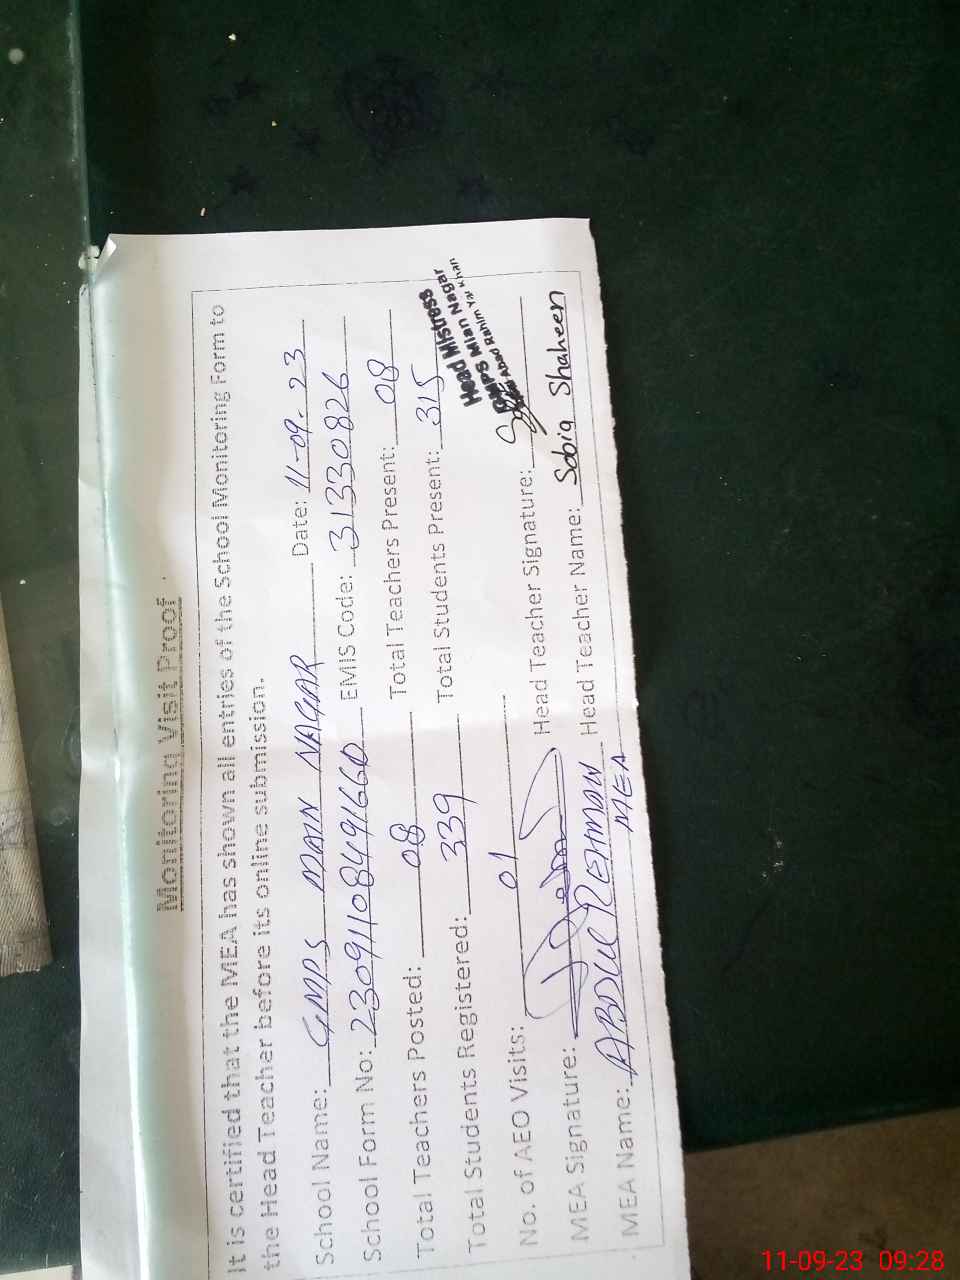 Monitoring Visit Proof
It is certified that the MEA has shown all entries of the School Monitoring Form to
the Head Teacher before its online submission.
School Name: GMPS MAIN NAGAR Date: 11-09-23
School Form No: 23091108491660 EMIS Code: 31330826
Total Teachers Posted: 08 Total Teachers Present: 08
Total Students Registered: 339 Total Students Present: 315
No. of AEO Visits: 01
Head Mistress
GMPS Mian Nagar
Abad Rahim Yar Khan
MEA Signature: Head Teacher Signature:
MEA Name: ABDUL REHMAN Head Teacher Name: Sobia Shaheen
MEA
11-09-23 09:28